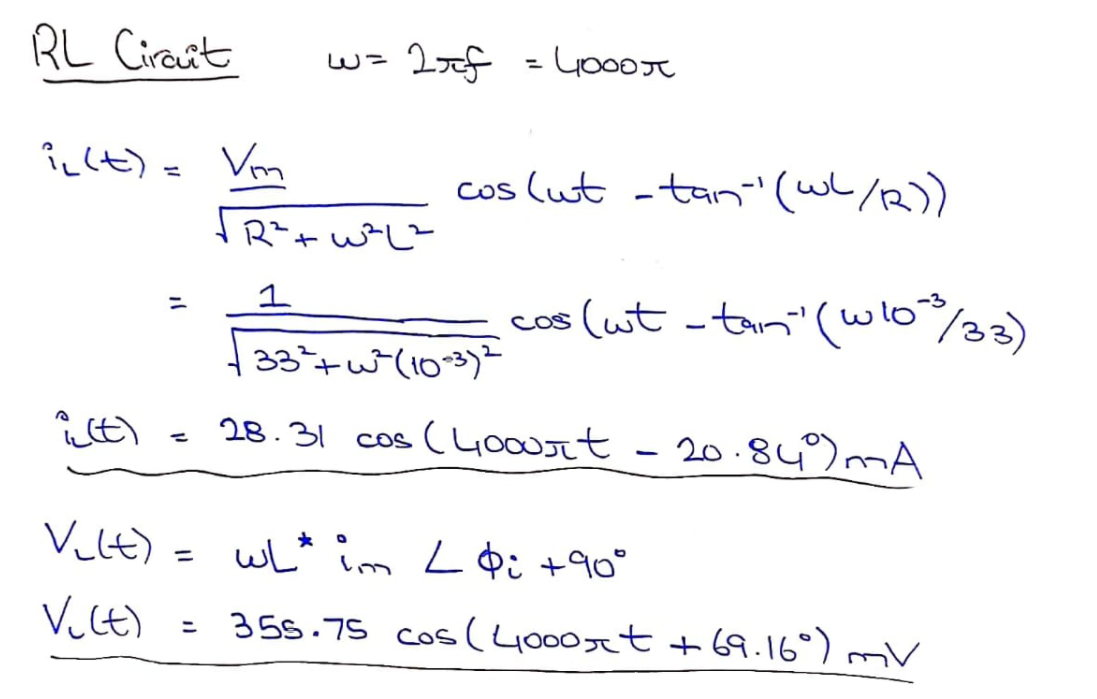 RL Circuit ω = 2πf = 4000π
i_L(t) = Vm / √(R² + ω²L²) cos(ωt - tan⁻¹(ωL/R))
= 1 / √(33² + ω²(10⁻³)²) cos(ωt - tan⁻¹(ω10⁻³/33))
i_L(t) = 28.31 cos(4000πt - 20.84°) mA
V_L(t) = ωL * im ∠ φi + 90°
V_L(t) = 355.75 cos(4000πt + 69.16°) mV